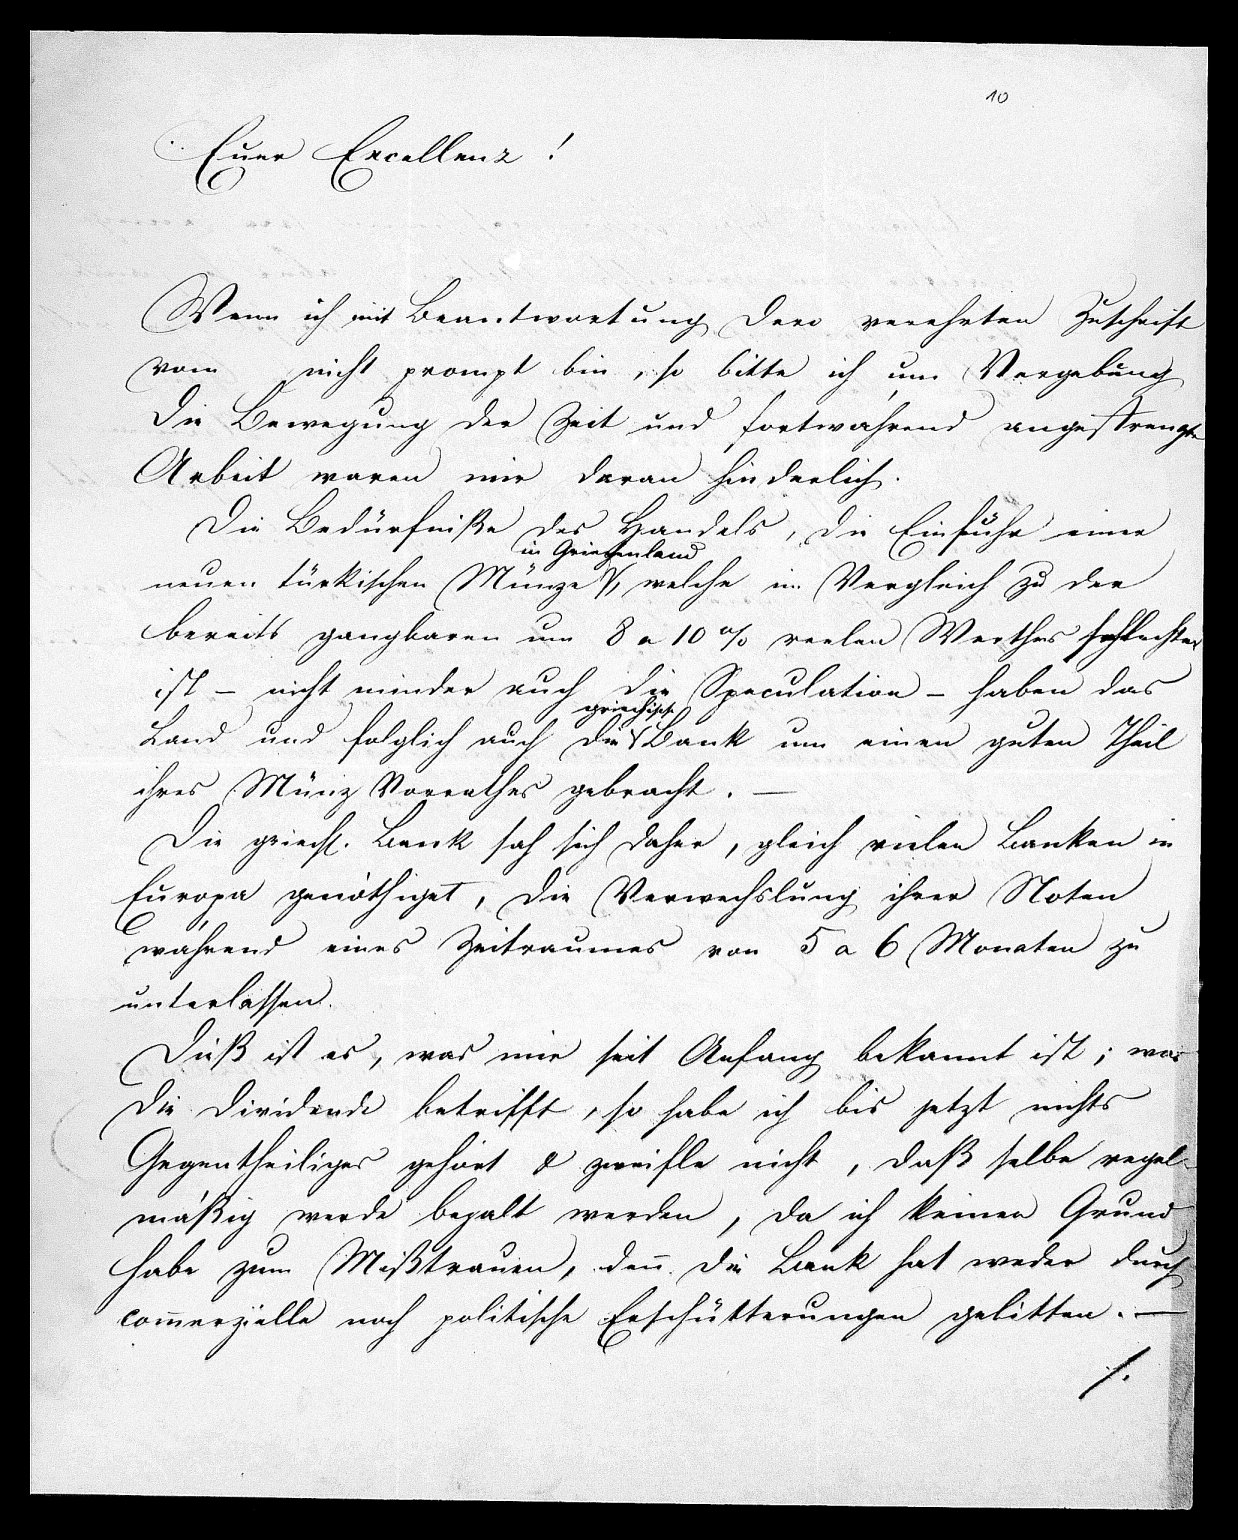 10
Euer Excellenz!
Wenn ich mit Beantwortung Dero verehrten Zuschrift
vom nicht prompt bin, so bitte ich um Vergebung
Die Bewegung der Zeit und fortwährend angestrengte
Arbeit waren mir daran hinderlich.
Die Bedürfniße des Handels, die Einfuhr einer
in Griechenland
neuen türkischen Münze, welche im Vergleich zu der
bereits gangbaren um 8 a 10 % reelen Werthes schlechter
ist – nicht minder auch die Speculation – haben das
griechische
Land und folglich auch die Bank um einen guten Theil
ihres Münz Vorrathes gebracht. —
Die griech. Bank sah sich daher, gleich vielen Banken in
Europa genöthiget, die Verwechslung ihrer Noten
während eines Zeitraumes von 5 a 6 Monaten zu
unterlassen.
Dieß ist es, was mir seit Anfang bekannt ist; was
die Dividende betrifft, so habe ich bis jetzt nichts
Gegentheiliges gehört & zweifle nicht, daß selbe regel-
mäßig werde bezalt werden, da ich keinen Grund
habe zum Mißtrauen, den̅ die Bank hat weder durch
com̅erzielle noch politische Erschütterungen gelitten. —
/.